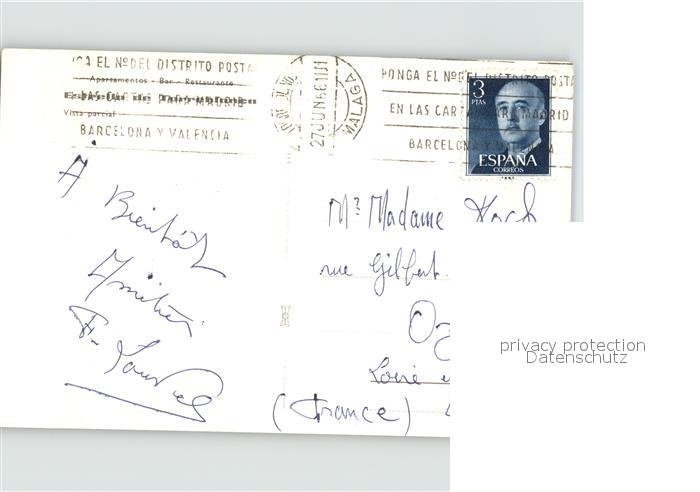 PONGA EL Nº DEL DISTRITO POSTA
Apartamentos - Bar - Restaurante
Vista parcial
BARCELONA Y VALENCIA
27 JUN 66
MALAGA
PONGA EL Nº DEL DISTRITO POSTA
EN LAS CARTAS PARA MADRID
BARCELONA Y VALENCIA
3
PTAS
ESPAÑA
CORREOS
A
Bientôt
Mr Madame Koch
rue Gilbert
Loire
(France)
privacy protection
Datenschutz